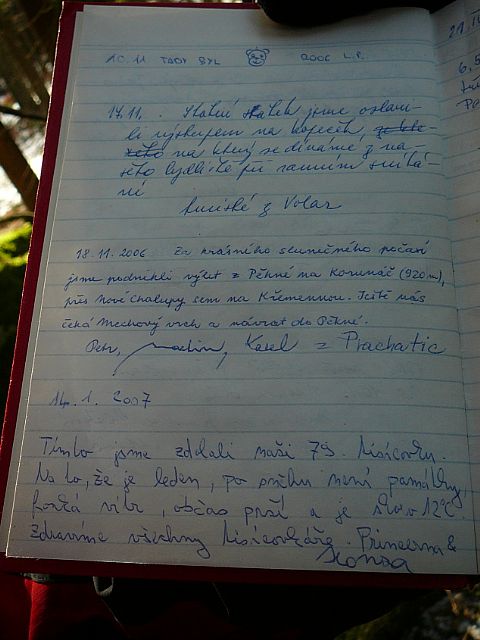 10.11 TADY BYL 2006 L.P.
21.
17.11. Státní svátek jsme oslavi-
li výstupem na kopeček,
na který se díváme z na-
šeho bydliště při ranním snídá-
ní
z Volar
18.11.2006 Za krásného slunečného počasí
jsme podnikli výlet z Pěkné na Korunáč (920 m),
přes Nové Chalupy sem na Křemennou. Ještě nás
čeká Mechový vrch a návrat do Pěkné.
Petr, Martin, Karel z Prachatic
1. 2007
Tímto jsme zdolali naši 79. lisicovku.
Na to, že je leden, po sněhu není památky,
fouká vítr, občas prší a je 12°C.
Zdravíme všechny Princezna &
Honza